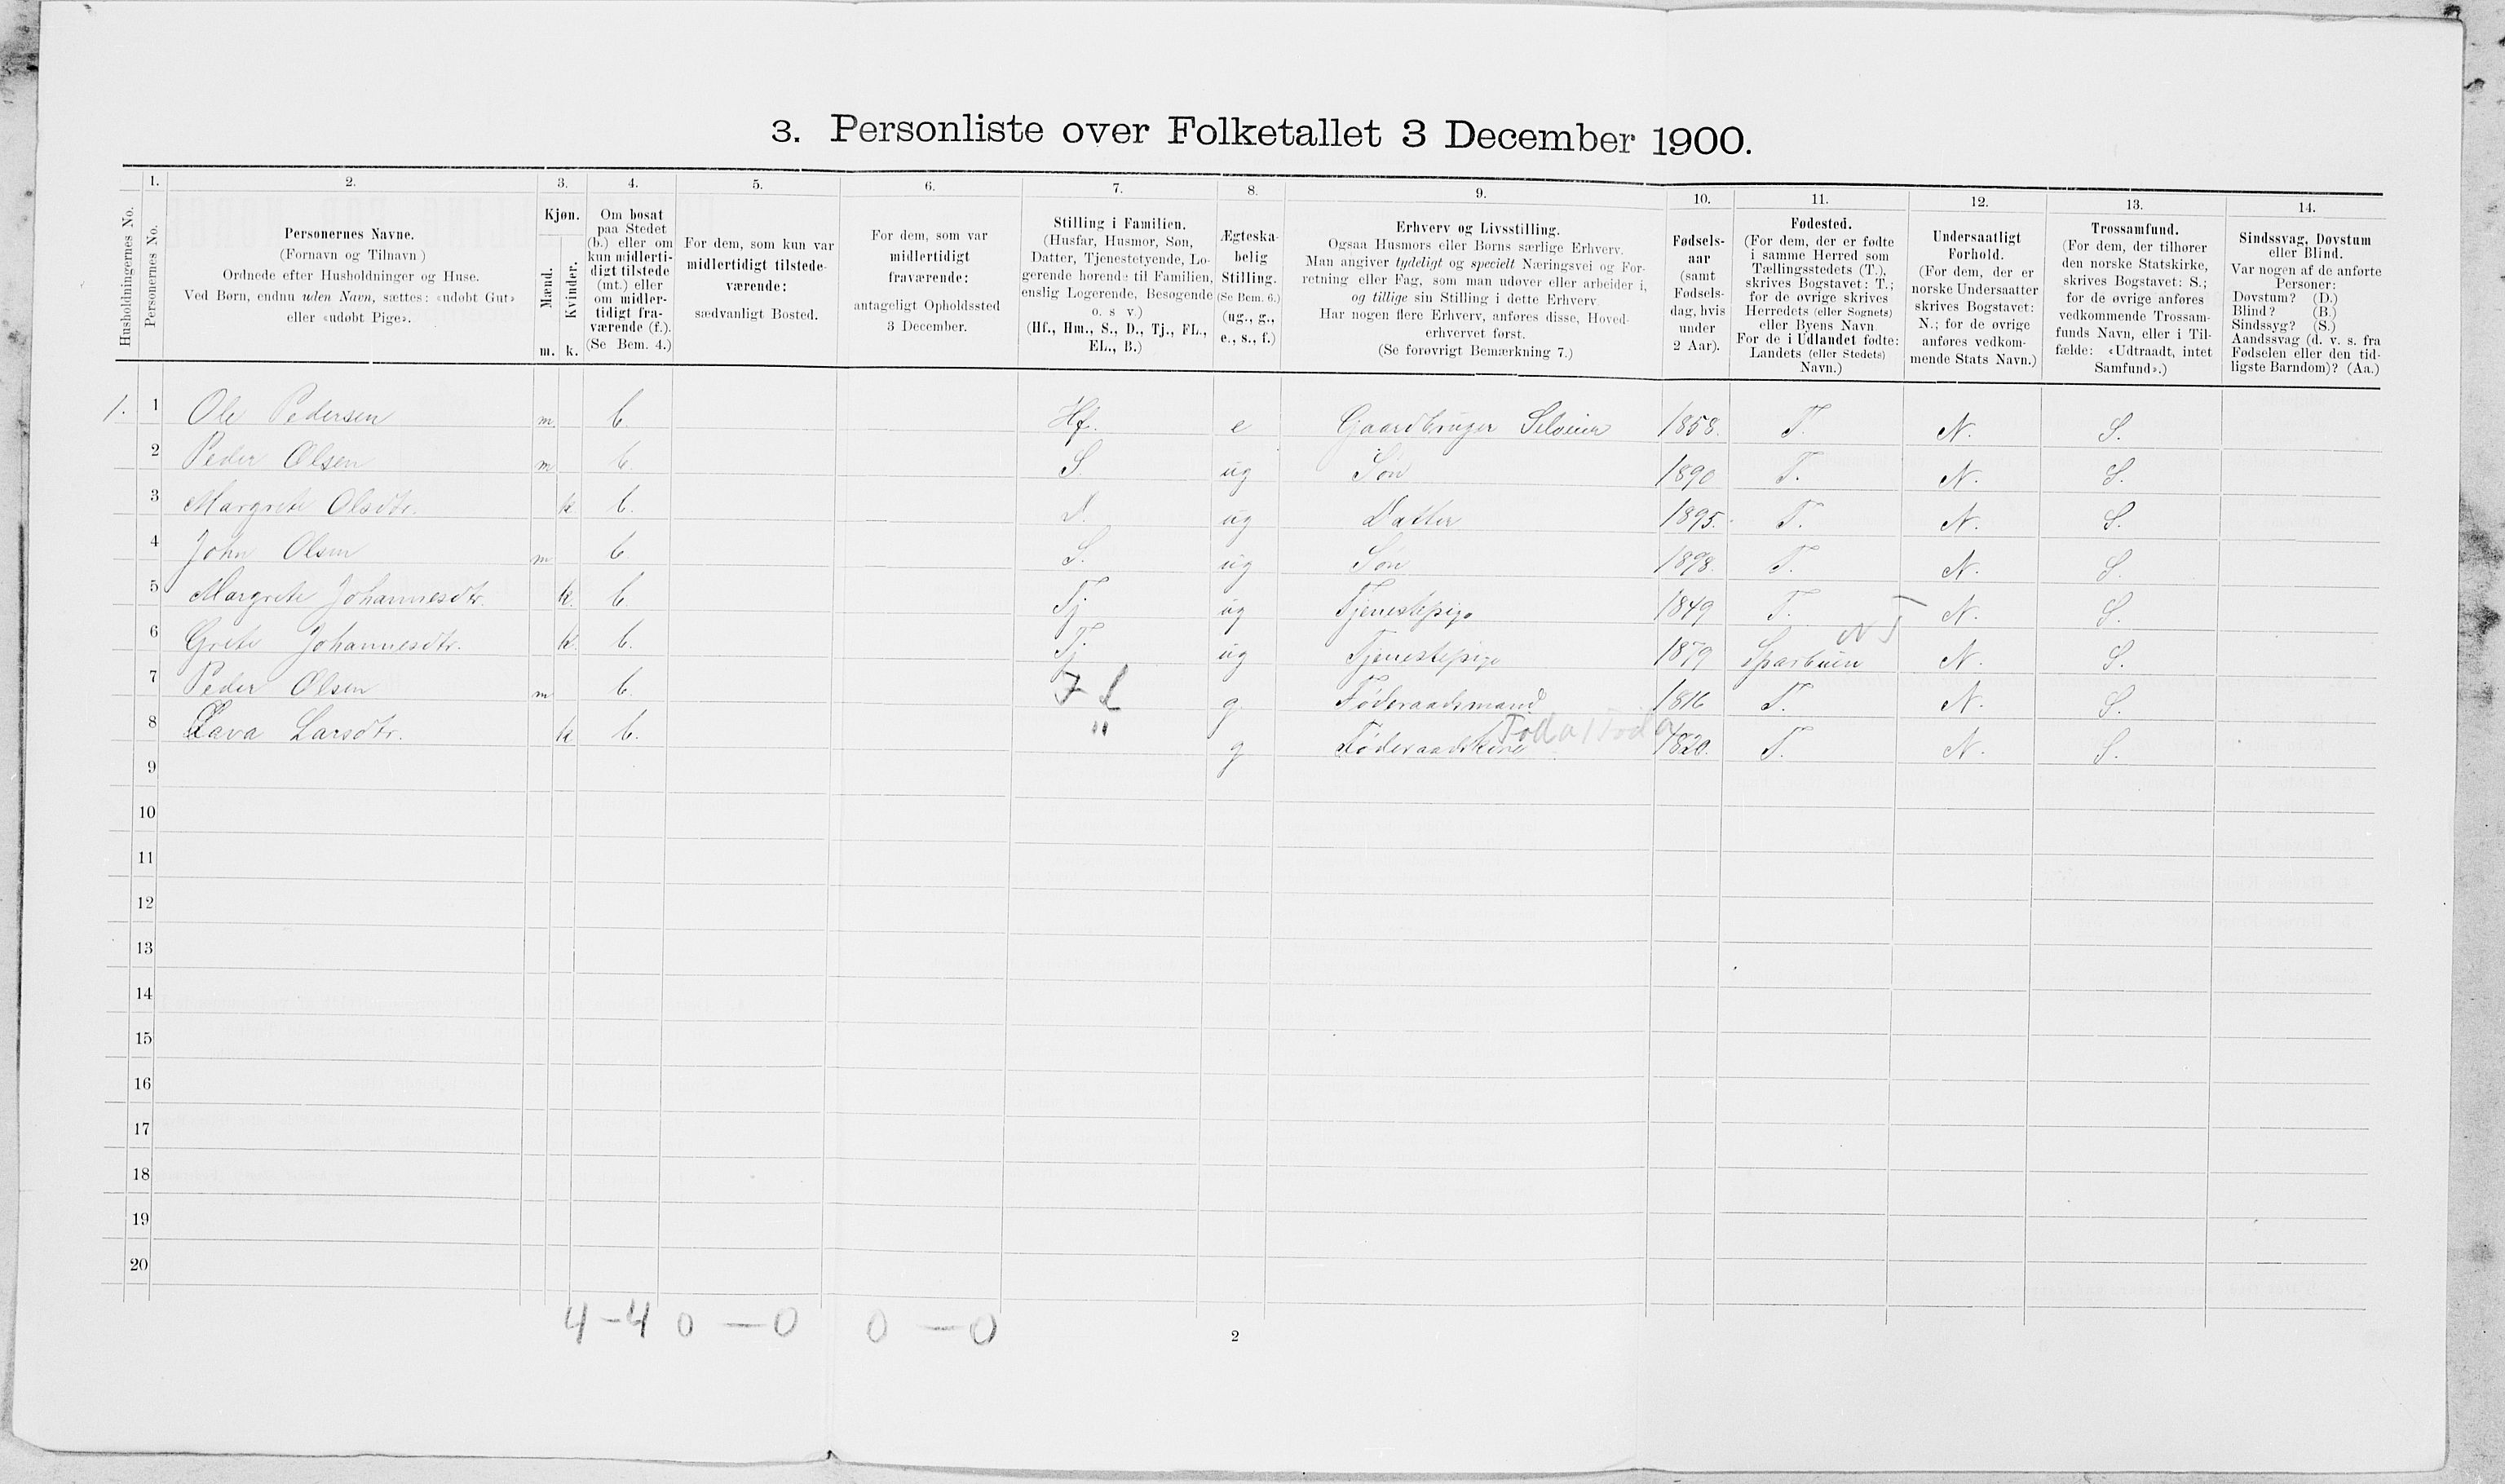 3. Personliste over Folketallet 3 December 1900.
1. 2. 3. 4. 5. 6. 7. 8. 9. 10. 11. 12. 13. 14.
Husholdningernes No.
Personernes No.
Personernes Navne.
(Fornavn og Tilnavn)
Ordnede efter Husholdninger og Huse.
Ved Børn, endnu uden Navn, sættes: «udøbt Gut»
eller «udøbt Pige».
Kjøn.
Mænd.
Kvinder.
m. k.
Om bosat
paa Stedet
(b.) eller om
kun midlerti-
digt tilstede
(mt.) eller
om midler-
tidigt fra-
værende (f.).
(Se Bem. 4.)
For dem, som kun var
midlertidigt tilstede-
værende:
sædvanligt Bosted.
For dem, som var
midlertidigt
fraværende:
antageligt Opholdssted
3 December.
Stilling i Familien.
(Husfar, Husmor, Søn,
Datter, Tjenestetyende, Lo-
gerende hørende til Familien,
enslig Logerende, Besøgende
o. s v.)
(Hf., Hm., S., D., Tj., FL.,
EL., B.)
Ægteska-
belig
Stilling.
(Se Bem. 6.)
(ug., g.,
e., s., f.)
Erhverv og Livsstilling.
Ogsaa Husmors eller Børns særlige Erhverv.
Man angiver tydeligt og specielt Næringsvei og For-
retning eller Fag, som man udøver eller arbeider i,
og tillige sin Stilling i dette Erhverv.
Har nogen flere Erhverv, anføres disse, Hoved-
erhvervet først.
(Se forøvrigt Bemærkning 7.)
Fødsels-
aar
(samt
Fødsels-
dag, hvis
under
2 Aar).
Fødested.
(For dem, der er fødte
i samme Herred som
Tællingsstedets (T.),
skrives Bogstavet: T.;
for de øvrige skrives
Herredets (eller Sognets)
eller Byens Navn
For de i Udlandet fødte:
Landets (eller Stedets)
Navn.)
Undersaatligt
Forhold.
(For dem, der er
norske Undersaatter
skrives Bogstavet:
N.; for de øvrige
anføres vedkom-
mende Stats Navn.)
Trossamfund.
(For dem, der tilhører
den norske Statskirke,
skrives Bogstavet: S.;
for de øvrige anføres
vedkommende Trossam-
funds Navn, eller i Til-
fælde: «Udtraadt, intet
Samfund».)
Sindssvag, Døvstum
eller Blind.
Var nogen af de anførte
Personer:
Døvstum? (D.)
Blind? (B.)
Sindssyg? (S.)
Aandssvag (d. v. s. fra
Fødselen eller den tid-
ligste Barndom)? (Aa.)
1. 1 Ole Pedersen m. b. Hf. e Gaardbruger Selveier 1858. T. N. S.
2 Peder Olsen m b. S. ug Søn 1890 T. N. S.
3 Margrete Olsdtr. k b. D. ug Datter 1895. T. N. S.
4 John Olsen m b. S. ug Søn 1898. T. N. S.
5 Margrete Johannesdtr. k. b. Tj ug Tjenestepige 1849 T. N. S.
6 Grete Johannesdtr. k. b. Tj ug Tjenestepige 1879 Sparbuen N. S.
7 Peder Olsen m b. FL g Føderaadsmand 1816 T. N. S.
8 Lava Larsdtr. k b. " g Føderaadskone 1820. T. N. S.
9
10
11
12
13
14
15
16
17
18
19
20
4-4 0 — 0 0 — 0
2